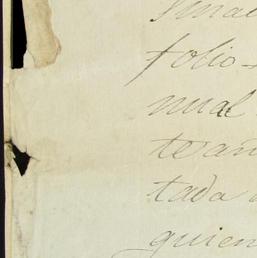 folio
nual
te añ
tada
quien